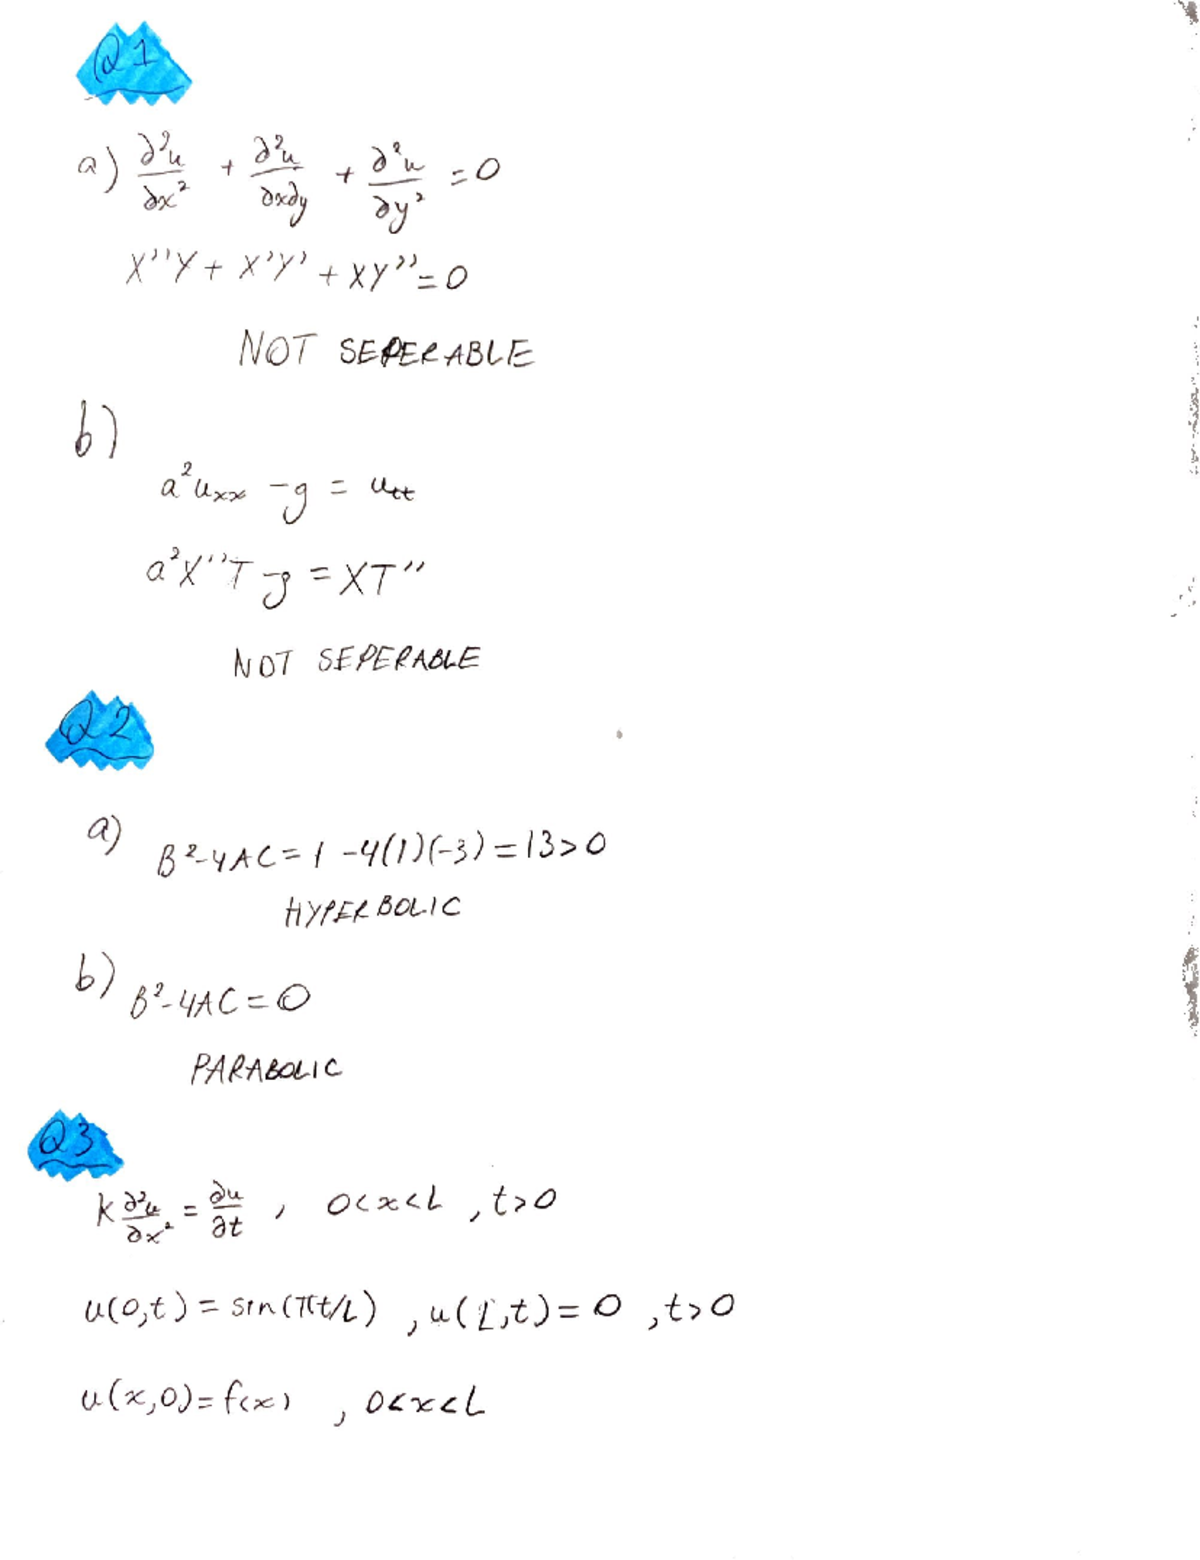 Q1
a) ∂²u/∂x² + ∂²u/∂x∂y + ∂²u/∂y² = 0
X''Y + X'Y' + XY'' = 0
NOT SEPERABLE
b)
a²uxx - g = utt
a²X''T - g = XT''
NOT SEPERABLE
Q2
a) B²-4AC = 1 - 4(1)(-3) = 13 > 0
HYPERBOLIC
b) B²-4AC = 0
PARABOLIC
Q3
k ∂²u/∂x² = ∂u/∂t , 0<x<L , t>0
u(0,t) = sin(πt/L) , u(L,t) = 0 , t>0
u(x,0) = f(x) , 0<x<L